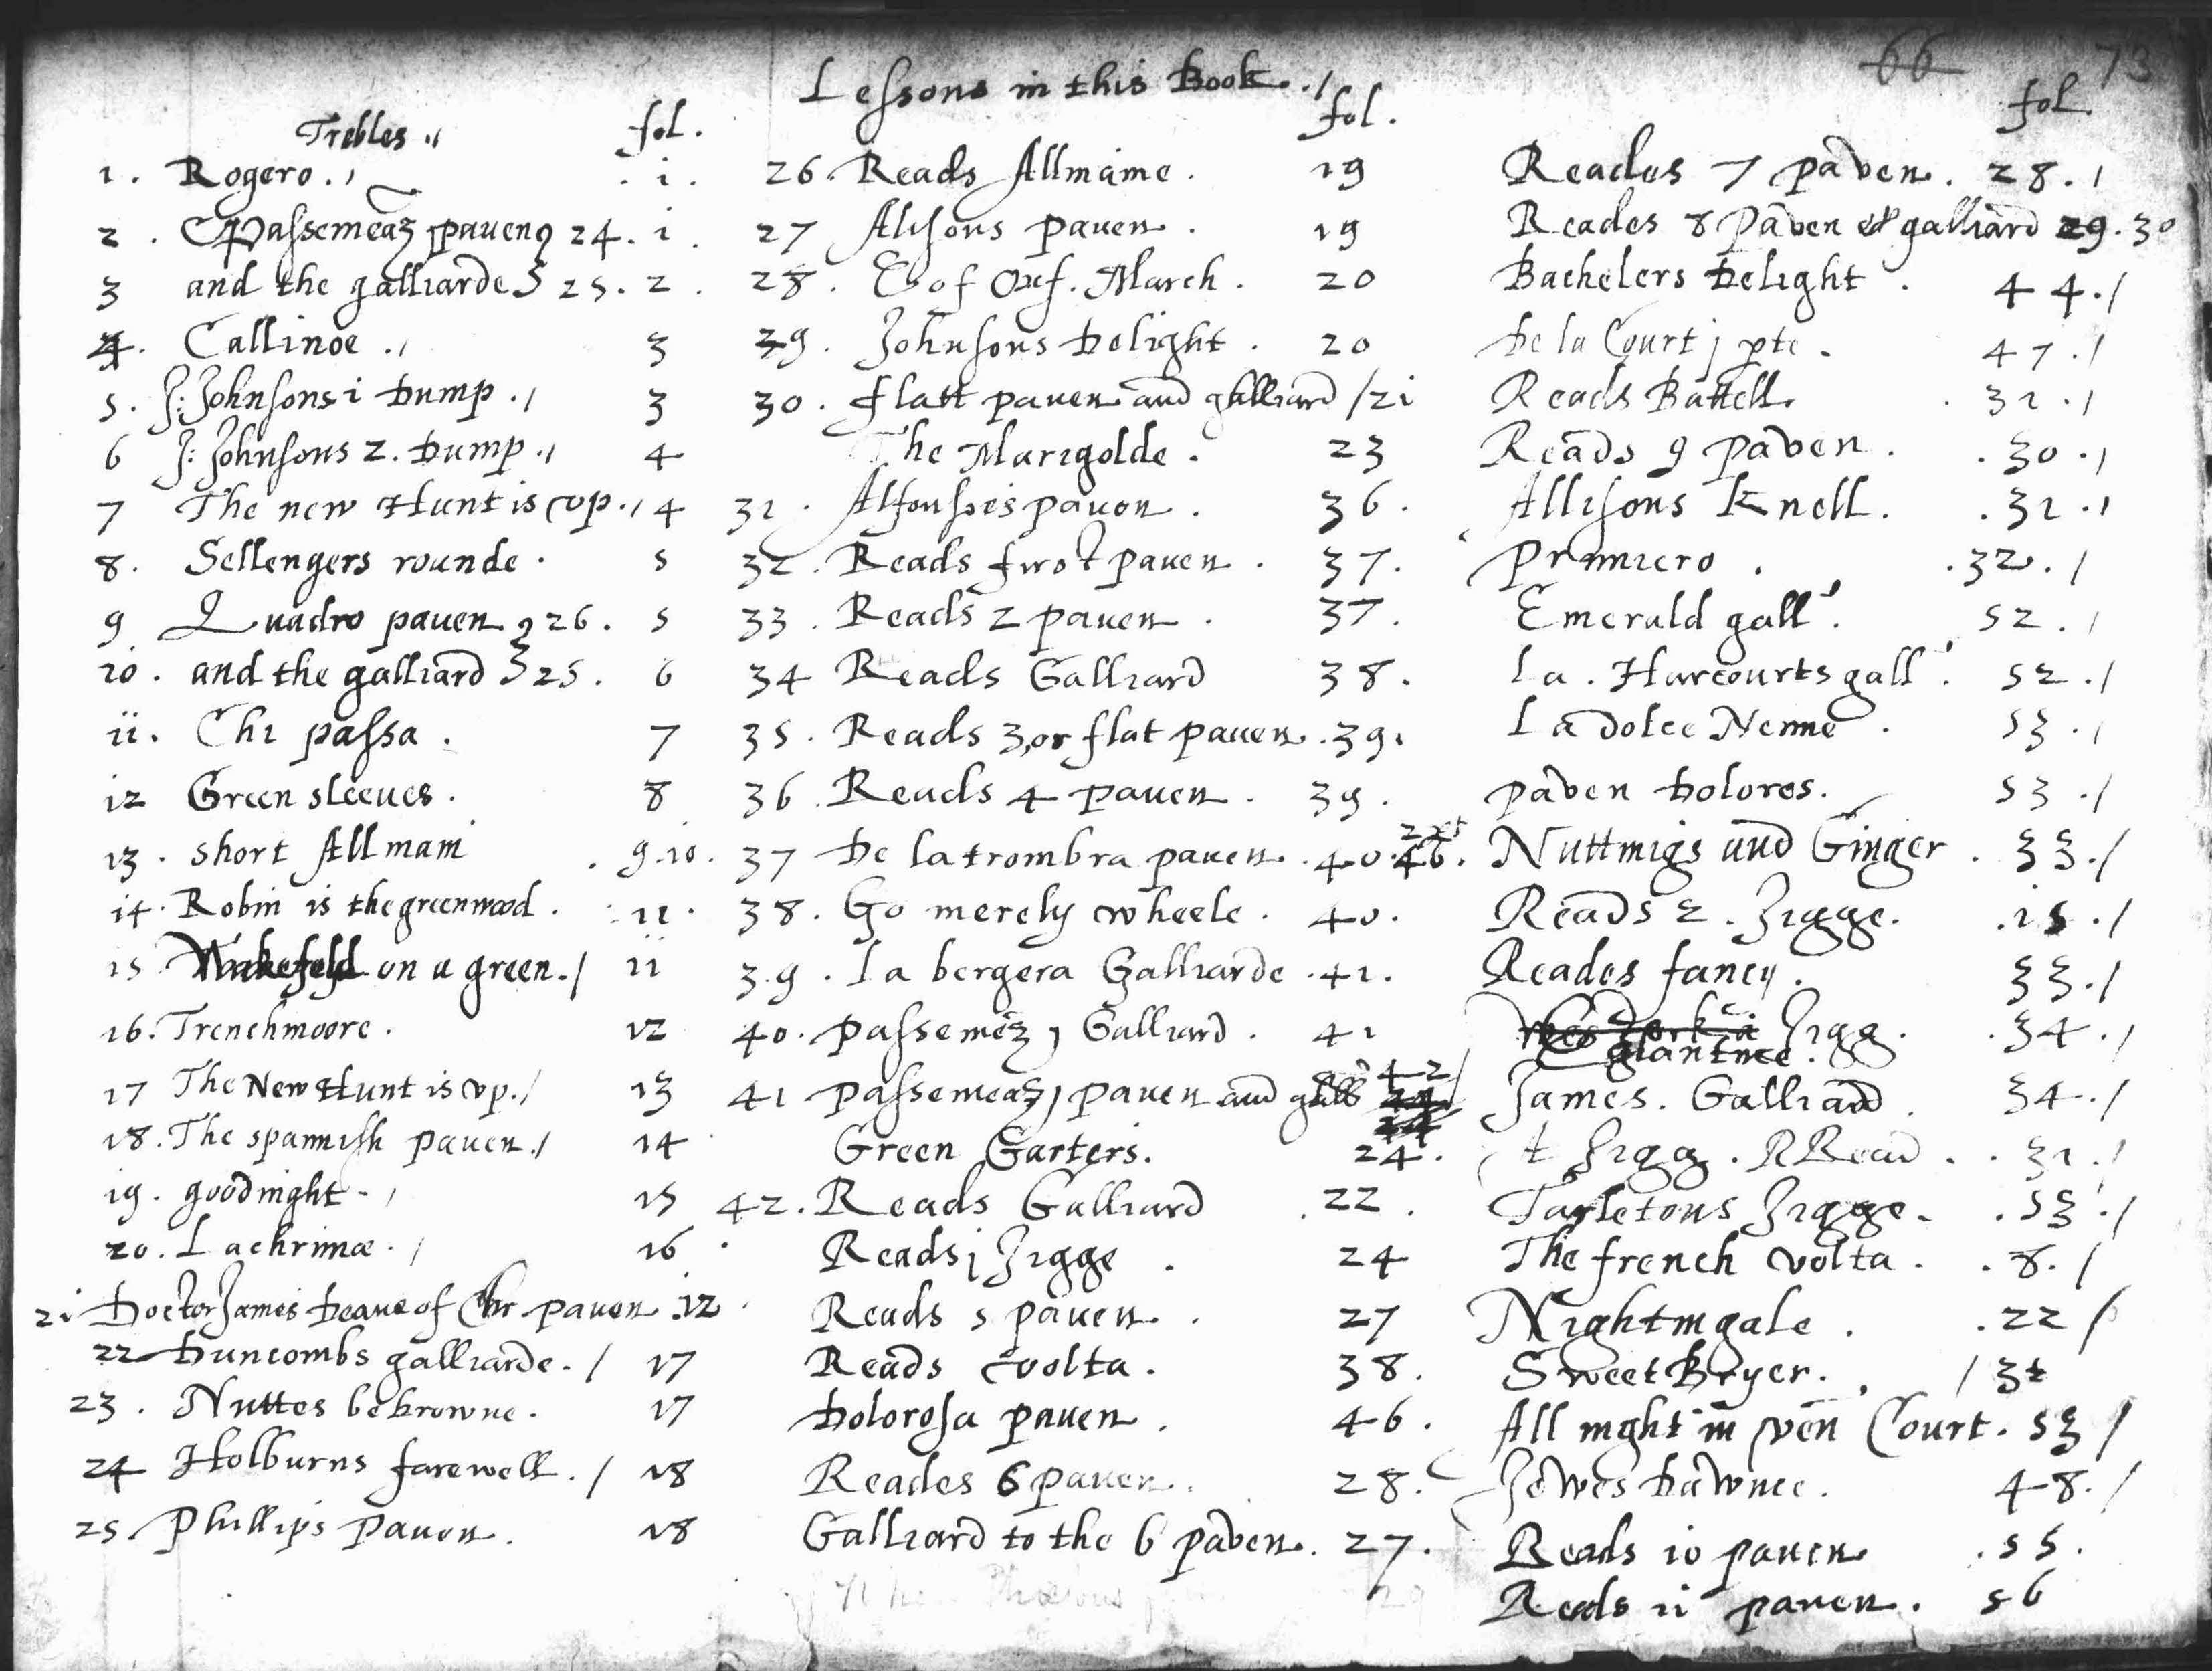 66 73
Lessons in this Book ./
Trebles ,, fol.
1 . Rogero ., . i .
2 . Passemeaz paven 24 . i .
3 and the galliarde 25 . 2 .
4 . Callinoe ., 3
5 . J: Johnsons i Dump ., 3
6 J: Johnsons 2. Dump ., 4
7 The new Hunt is vp ., 4
8 . Sellengers rounde . 5
9 Quadro pauen 26 . 5
10 . and the galliard 25 . 6
ii . Chi passa . 7
i2 Green sleeues . 8
13 . short Allmain . 9.10 .
i4 . Robin is the greenwood . 11 .
15 Wakefeld on a green ./ ii
16 . Trenchmoore . 12
17 The New Hunt is vp ./ 13
18 . The spannish pauen ./ 14
19 . goodnight - , 15
20 . Lachrimæ . , 16
2i Doctor James Deane of Chr pauen . 12
22 Duncombs galliarde . / 17
23 . Nuttes be browne . 17
24 Holburns farewell . / 18
25 Phillips Pauen . 18
fol .
26 . Reads Allmaine . 19
27 Alisons pauen . 19
28 . E of Oxf. March . 20
29 . Johnsons Delight . 20
30 . flatt pauen and galliard / 2i
The Marigolde . 23
31 . Alfonsies pauen . 36 .
32 . Reads first pauen . 37 .
33 . Reads 2 pauen . 37 .
34 Reads Galliard 38 .
35 . Reads 3, or flat pauen . 39 .
36 . Reads 4 pauen . 39 .
37 De la trombra pauen . 40 . 46 .
38 . Go merely wheele . 40 .
39 . La bergera Galliarde . 41 .
40 . passemez j Galliard . 41
41 passemeaz j pauen and gall 42 /
Green Garters . 24 .
42 . Reads Galliard . 22 .
Reads j Jigge . 24
Reads 5 pauen . 27
Reads volta . 38 .
Dolorosa pauen . 46 .
Reades 6 pauen . 28 .
Galliard to the 6 paven . 27 .
fol
Reades 7 paven . 28 . /
Reades 8 Paven et galliard 29 . 30
Bachelers Delight . 44 . /
De la Court j pte . 47 . /
Reads Battell . 31 . /
Reads 9 Paven . . 30 . /
Allisons Knell . . 31 . /
Primiero . . 32 . /
Emerald gall . 52 . /
La . Harcourts gall . 52 . /
La dolce Nenne . 53 . /
paven Dolores . 53 . /
Nuttmigs and Ginger . 33 . /
Reads 2 . Jigge . . 15 . /
Reades fancy . 33 . /
Jigg . . 34 . /
James . Galliard . 34 . /
A Jigg . R Read . . 31 . /
Tarletons Jigge . . 53 . /
The french volta . . 8 . /
Nightingale . . 22 /
Sweet Bryer . / 32
All night in ven Court . 53 /
Jewes Dawnce . 48 . /
Reads 10 pauen . 55 .
Reads 11 pauen . 56